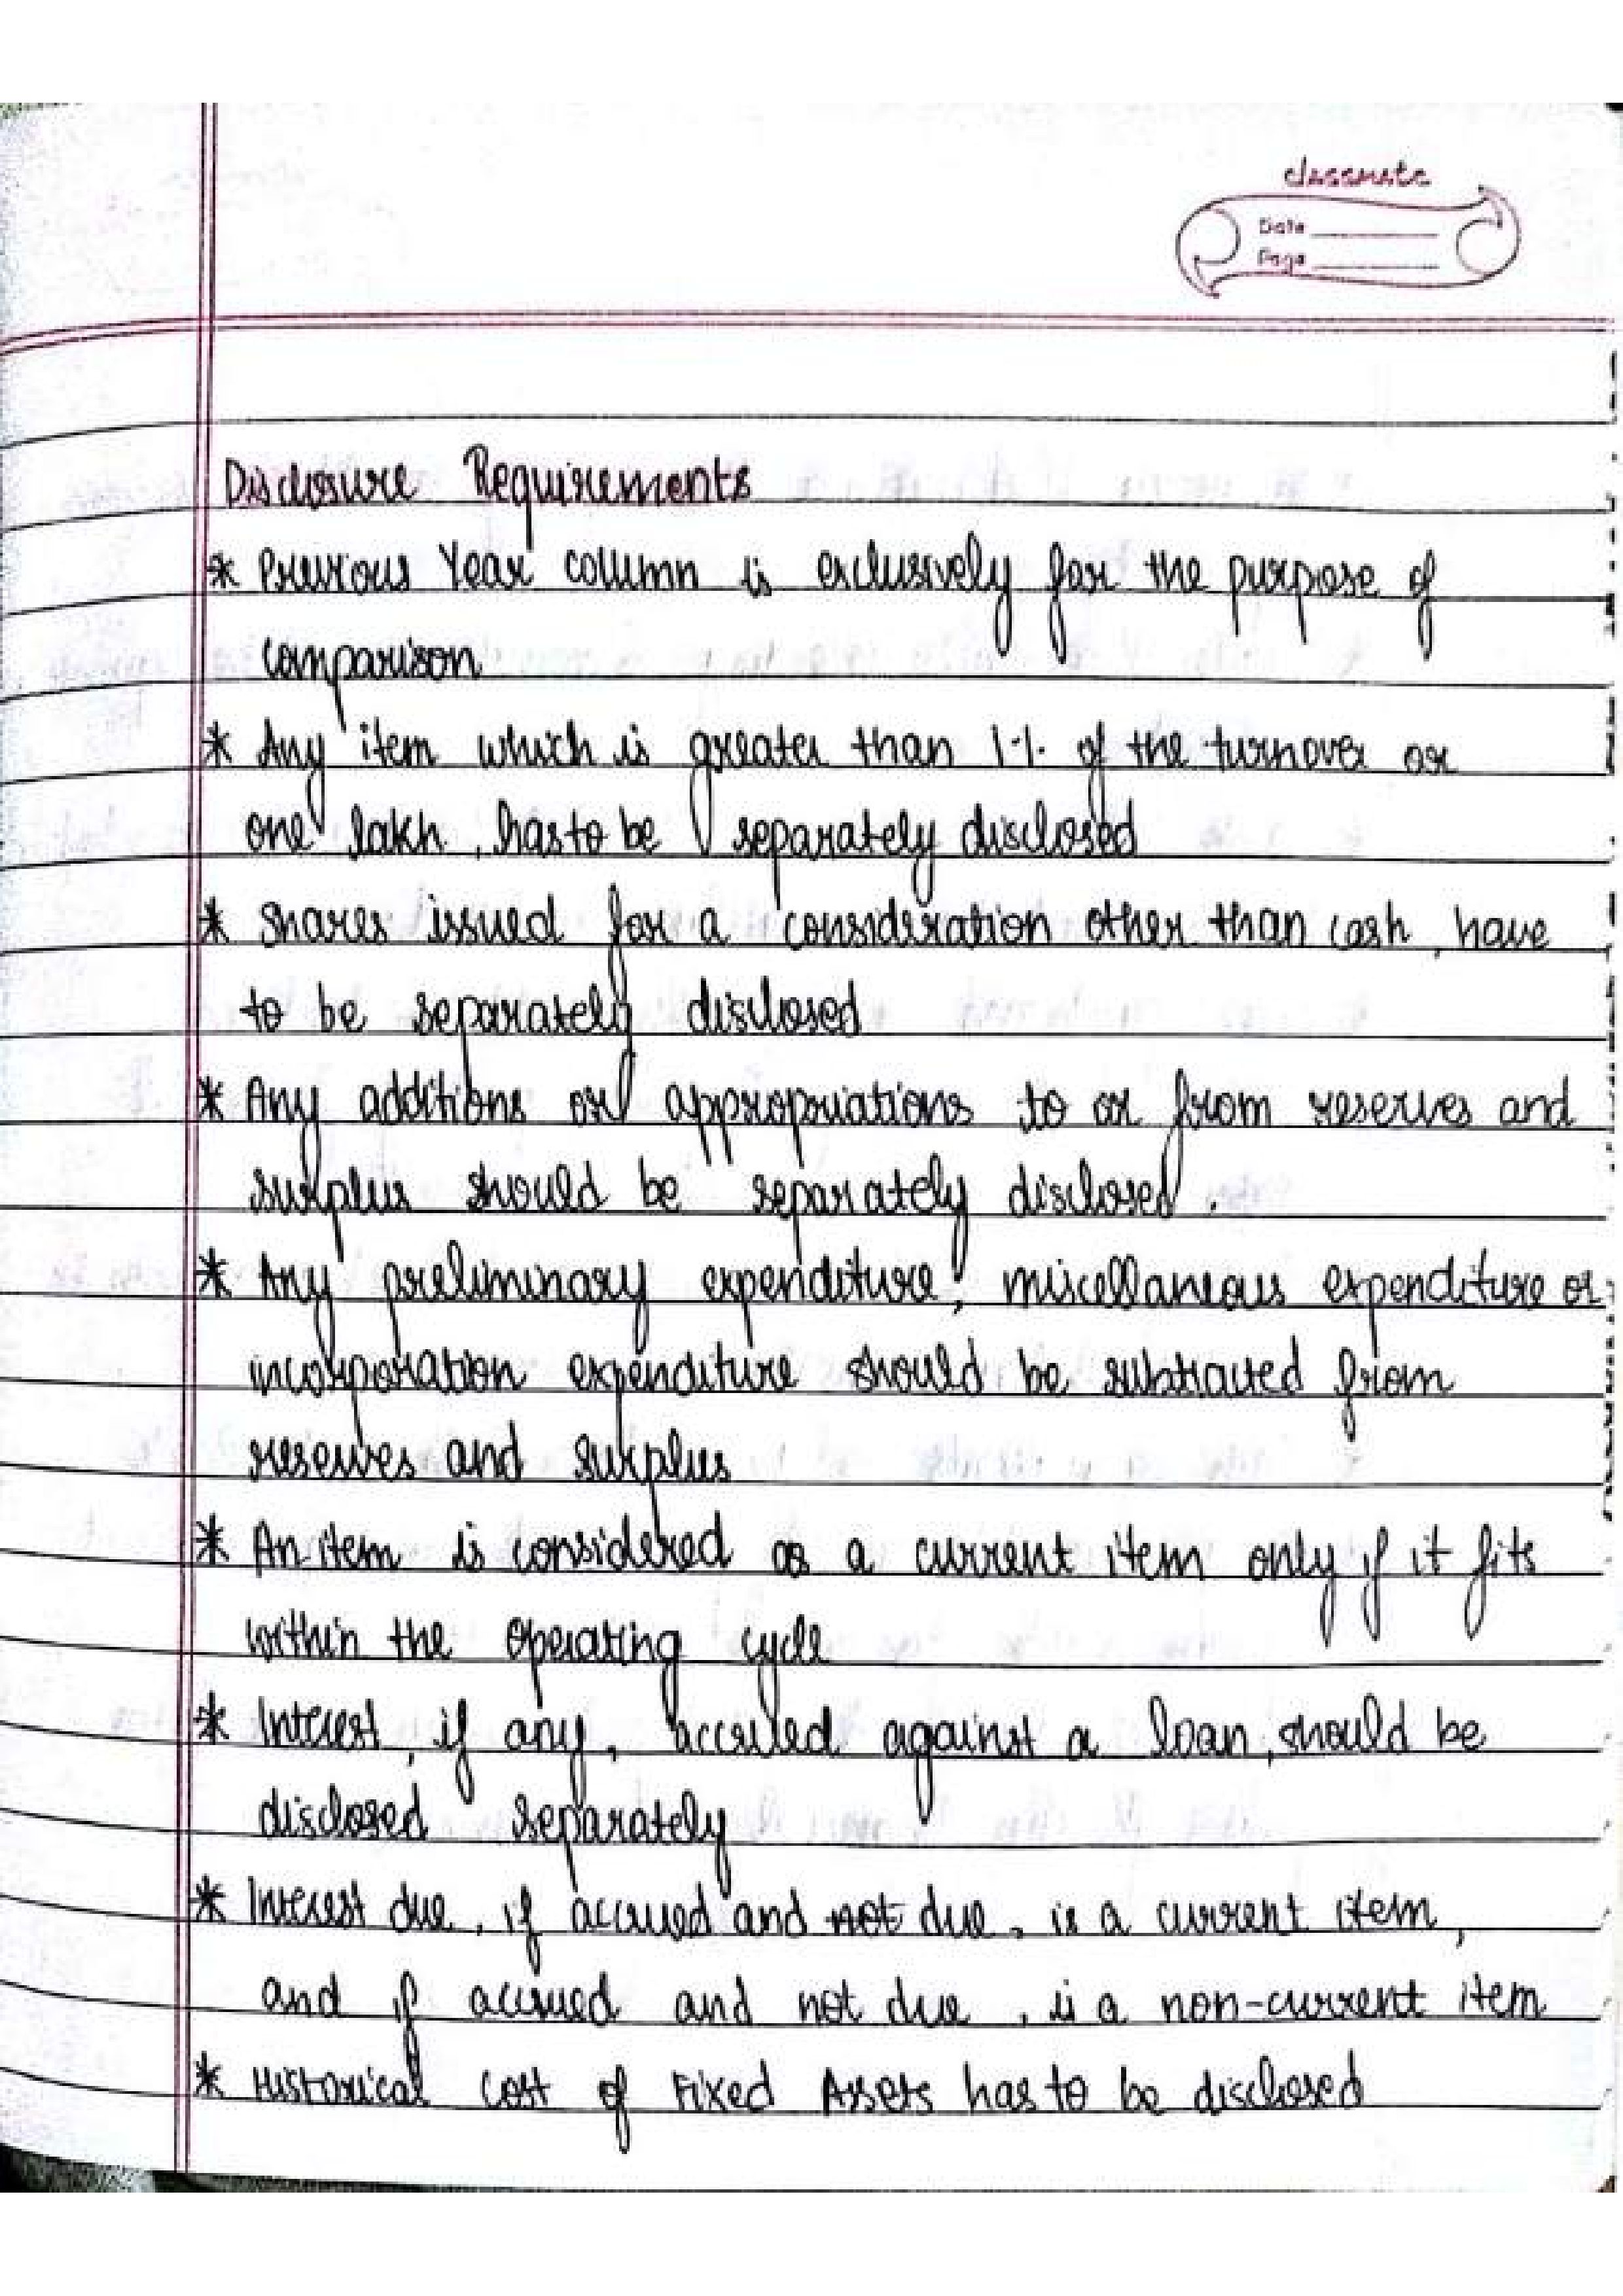 classmate
Date
Page
Disclosure Requirements
* Previous Year column is exclusively for the purpose of
comparison
* Any item which is greater than 1% of the turnover or
one lakh, has to be separately disclosed
* Shares issued for a consideration other than cash, have
to be separately disclosed
* Any additions or appropriations to or from reserves and
surplus should be separately disclosed.
* Any preliminary expenditure, miscellaneous expenditure or
incorporation expenditure should be subtracted from
reserves and surplus
* An item is considered as a current item only if it fits
within the operating cycle
* Interest, if any, accrued against a loan, should be
disclosed separately
* Interest due, if accrued and not due, is a current item,
and if accrued and not due, is a non-current item
* Historical cost of Fixed Assets has to be disclosed